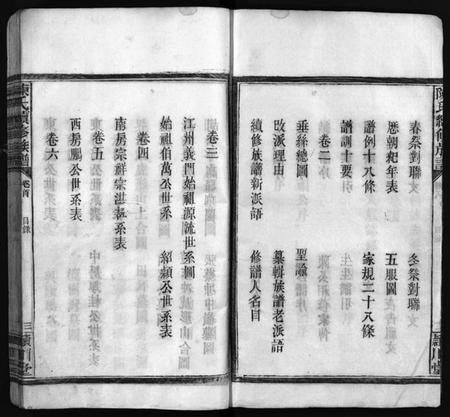 陳氏續修族譜
春祭對聯文
冬祭對聯文
歷朝紀年表
五服圖
譜例十八條
家規二十八條
譜訓十要
卷二
垂絲總圖
聖諭
改派理由
纂輯族譜老派語
續修族譜新派語
修譜人名目
陳氏續修族譜
卷首
目錄
三
潁川堂
卷三
江州義門始祖源流世系圖
始祖伯萬公世系圖
紹緒公世系表
卷四
南房宗
世系表
卷五
西房鵬公世系表
卷六